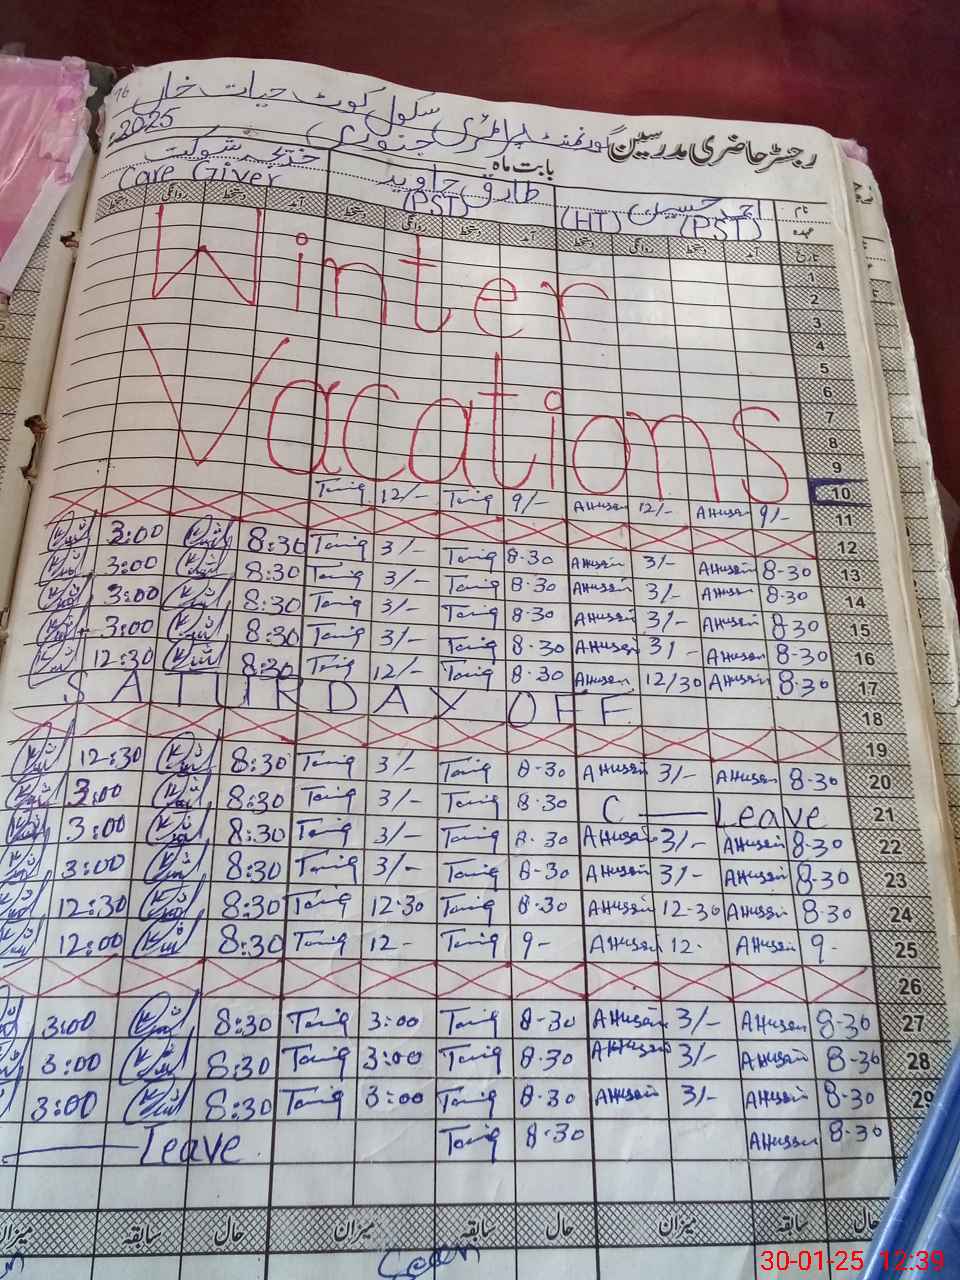 رجسٹر حاضری مدرسین گورنمنٹ پرائمری سکول کوٹ حیات خاں
بابت ماہ جنوری 2025
نام احمد حسین طارق جاوید خدیجہ شوکت
عہدہ (PST) (HT) (PST) Care Giver
تاریخ آمد دستخط روانگی دستخط آمد دستخط روانگی دستخط آمد دستخط روانگی دستخط
Winter
Vacations
1
2
3
4
5
6
7
8
9
10
Tariq 12/- Tariq 9/- AHusain 12/- AHusain 9/- 11
12
3:00 8:30 Tariq 3/- Tariq 8-30 AHusain 3/- AHusain 8-30 13
3:00 8:30 Tariq 3/- Tariq 8-30 AHusain 3/- AHusain 8-30 14
3:00 8:30 Tariq 3/- Tariq 8-30 AHusain 3/- AHusain 8-30 15
3:00 8:30 Tariq 3/- Tariq 8-30 AHusain 3/- AHusain 8-30 16
12:30 8:30 Tariq 12/- Tariq 8-30 AHusain 12/30 AHusain 8-30 17
SATURDAY OFF 18
19
12:30 8:30 Tariq 3/- Tariq 8-30 AHusain 3/- AHusain 8-30 20
3:00 8:30 Tariq 3/- Tariq 8-30 C — Leave 21
3:00 8:30 Tariq 3/- Tariq 8-30 AHusain 3/- AHusain 8-30 22
3:00 8:30 Tariq 3/- Tariq 8-30 AHusain 3/- AHusain 8-30 23
12:30 8:30 Tariq 12-30 Tariq 8-30 AHusain 12-30 AHusain 8-30 24
12:00 8:30 Tariq 12- Tariq 9- AHusain 12- AHusain 9- 25
26
3:00 8:30 Tariq 3:00 Tariq 8-30 AHusain 3/- AHusain 8-30 27
3:00 8:30 Tariq 3:00 Tariq 8-30 AHusain 3/- AHusain 8-30 28
3:00 8:30 Tariq 3:00 Tariq 8-30 AHusain 3/- AHusain 8-30 29
— Leave Tariq 8-30 AHusain 8-30
حال سابقہ میزان حال سابقہ میزان حال سابقہ میزان
Seen
30-01-25 12:39